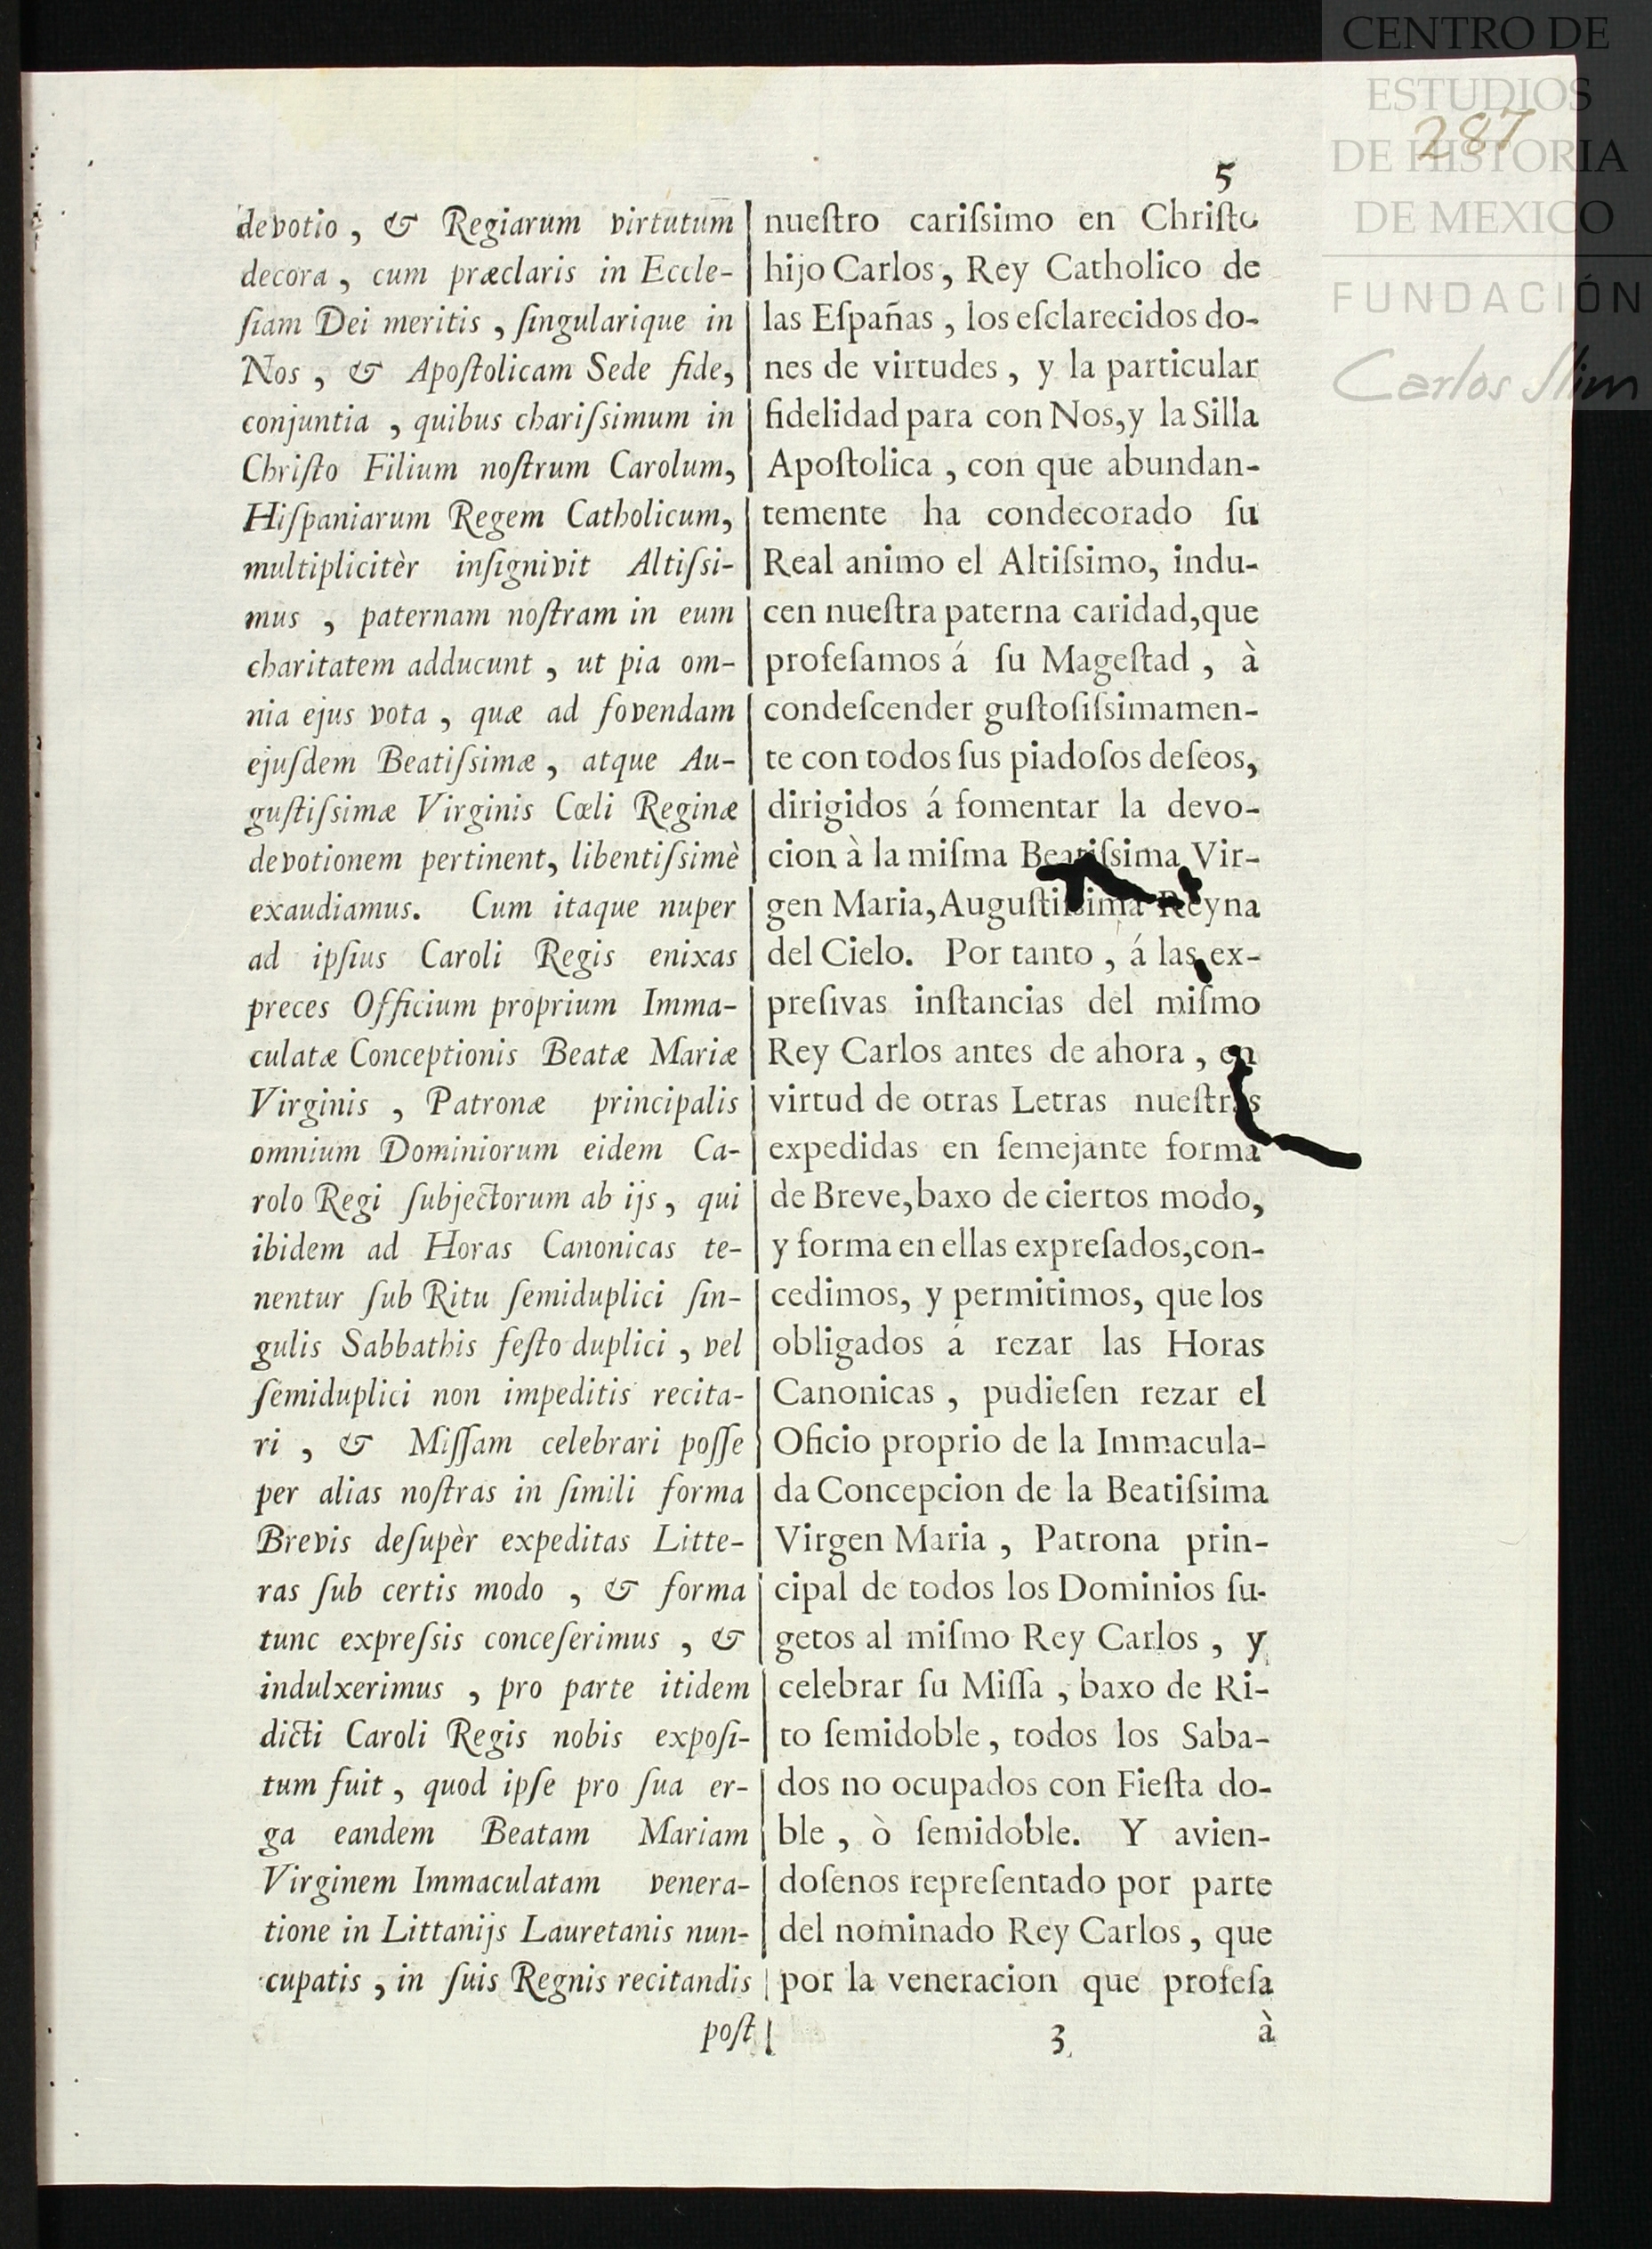 CENTRO DE
ESTUDIOS
DE HISTORIA
DE MEXICO
FUNDACIÓN
Carlos Slim
287
5
devotio, & Regiarum virtutum
decora, cum præclaris in Eccle-
ſiam Dei meritis, ſingularique in
Nos, & Apoſtolicam Sede fide,
conjuntia, quibus chariſsimum in
Chriſto Filium noſtrum Carolum,
Hiſpaniarum Regem Catholicum,
multiplicitèr inſignivit Altiſsi-
mus, paternam noſtram in eum
charitatem adducunt, ut pia om-
nia ejus vota, quæ ad fovendam
ejuſdem Beatiſsimæ, atque Au-
guſtiſsimæ Virginis Cœli Reginæ
devotionem pertinent, libentiſsimè
exaudiamus. Cum itaque nuper
ad ipſius Caroli Regis enixas
preces Officium proprium Imma-
culatæ Conceptionis Beatæ Mariæ
Virginis, Patronæ principalis
omnium Dominiorum eidem Ca-
rolo Regi ſubjectorum ab ijs, qui
ibidem ad Horas Canonicas te-
nentur ſub Ritu ſemiduplici ſin-
gulis Sabbathis feſto duplici, vel
ſemiduplici non impeditis recita-
ri, & Miſſam celebrari poſſe
per alias noſtras in ſimili forma
Brevis deſupèr expeditas Litte-
ras ſub certis modo, & forma
tunc expreſsis conceſerimus, &
indulxerimus, pro parte itidem
dicti Caroli Regis nobis expoſi-
tum fuit, quod ipſe pro ſua er-
ga eandem Beatam Mariam
Virginem Immaculatam venera-
tione in Littanijs Lauretanis nun-
cupatis, in ſuis Regnis recitandis
poſt
nueſtro cariſsimo en Chriſto
hijo Carlos, Rey Catholico de
las Eſpañas, los eſclarecidos do-
nes de virtudes, y la particular
fidelidad para con Nos, y la Silla
Apoſtolica, con que abundan-
temente ha condecorado ſu
Real animo el Altiſsimo, indu-
cen nueſtra paterna caridad, que
profeſamos á ſu Mageſtad, à
condeſcender guſtoſiſsimamen-
te con todos ſus piadoſos deſeos,
dirigidos á fomentar la devo-
cion à la miſma Beatiſsima Vir-
gen Maria, Auguſtiſsima Reyna
del Cielo. Por tanto, á las ex-
preſivas inſtancias del miſmo
Rey Carlos antes de ahora, en
virtud de otras Letras nueſtras
expedidas en ſemejante forma
de Breve, baxo de ciertos modo,
y forma en ellas expreſados, con-
cedimos, y permitimos, que los
obligados á rezar las Horas
Canonicas, pudieſen rezar el
Oficio proprio de la Immacula-
da Concepcion de la Beatiſsima
Virgen Maria, Patrona prin-
cipal de todos los Dominios ſu-
getos al miſmo Rey Carlos, y
celebrar ſu Miſſa, baxo de Ri-
to ſemidoble, todos los Saba-
dos no ocupados con Fieſta do-
ble, ò ſemidoble. Y avien-
doſenos repreſentado por parte
del nominado Rey Carlos, que
por la veneracion que profeſa
3 à